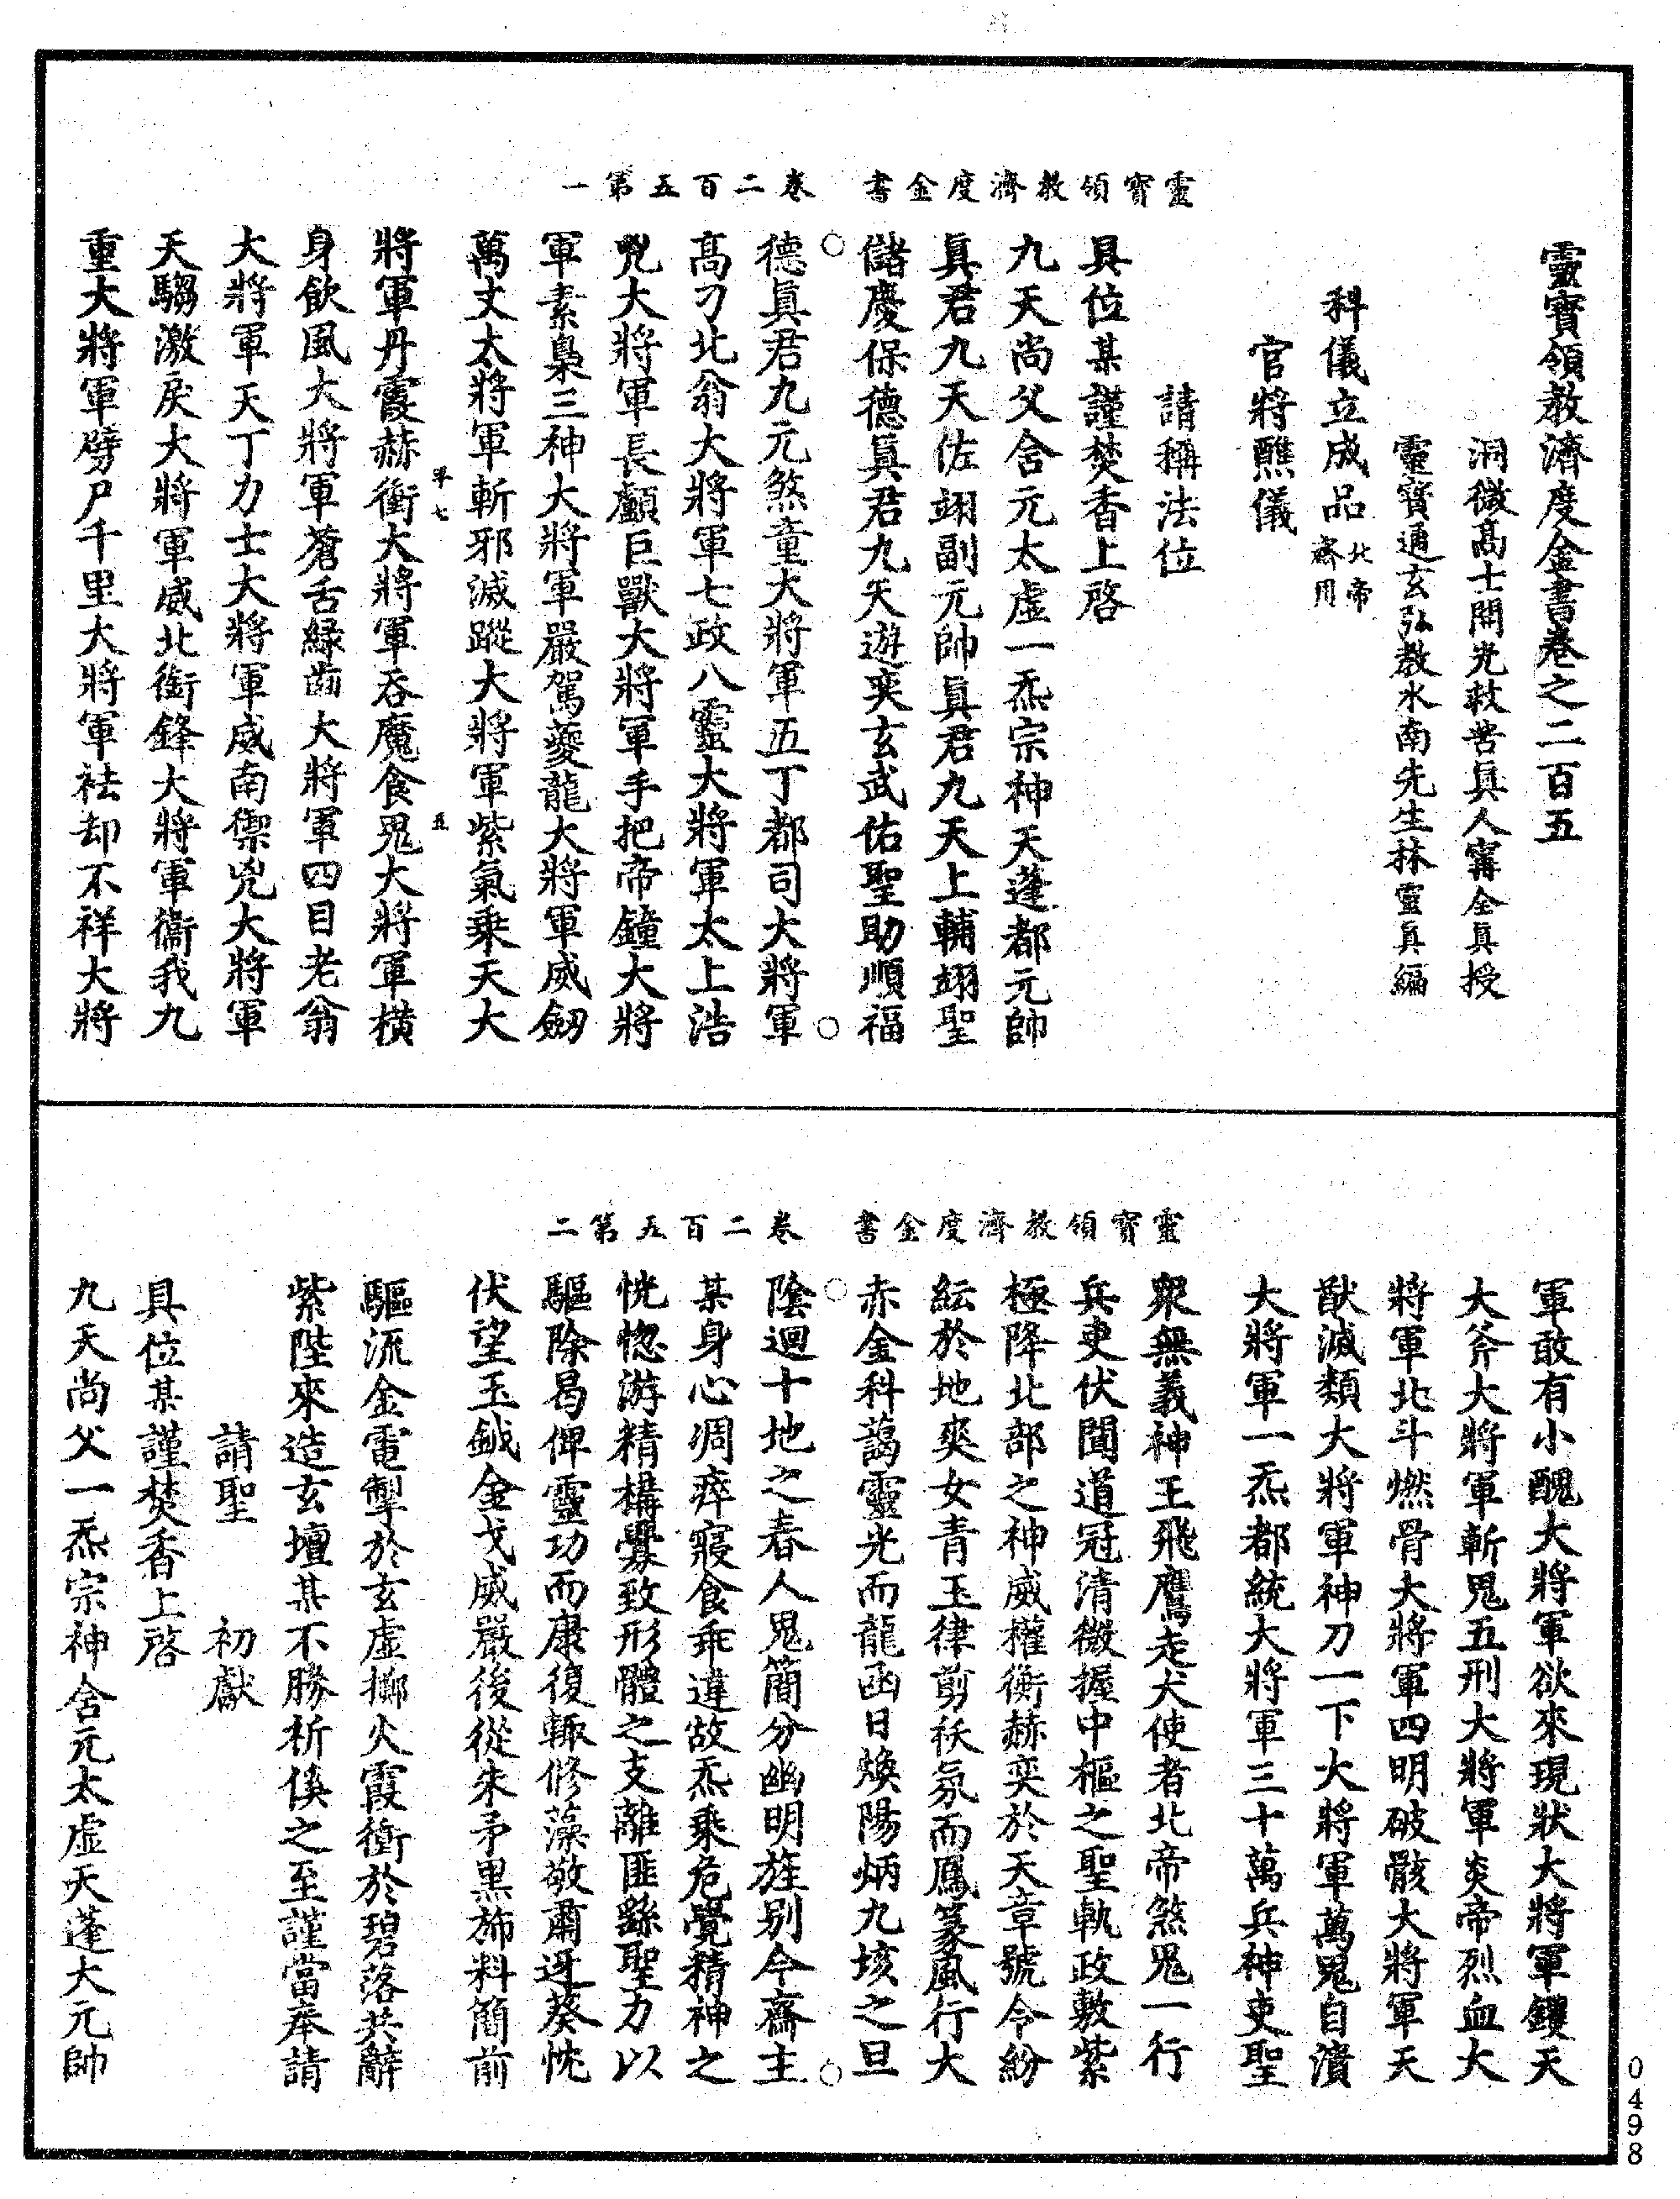 靈寶領教濟度金書　卷二百五第一
靈寶領教濟度金書卷之二百五
洞微高士開光救苦真人甯全真授
靈寶通玄弘教水南先生林靈真編
科儀立成品北帝齋用
官將醮儀
請稱法位
具位某謹焚香上啓
九天尚父舍元太虛一炁宗神天蓬都元帥
真君九天佐翊副元帥真君九天上輔翊聖
儲慶保德真君九天遊奕玄武佑聖助順福
德真君九元煞童大將軍五丁都司大將軍
高刁北翁大將軍七政八靈大將軍太上浩
兇大將軍長顱巨獸大將軍手把帝鐘大將
軍素梟三神大將軍嚴駕夔龍大將軍威劒
萬丈太將軍斬邪滅蹤大將軍紫氣乘天大
將軍丹霞赫衝大將軍吞魔食鬼大將軍橫
身飲風大將軍蒼舌綠齒大將軍四目老翁
大將軍天丁力士大將軍威南禦兇大將軍
天騶激戾大將軍威北銜鋒大將軍衞我九
重大將軍劈尸千里大將軍袪却不祥大將
靈寶領教濟度金書　卷二百五第二
軍敢有小醜大將軍欲來現狀大將軍钁天
大斧大將軍斬鬼五刑大將軍炎帝烈血大
將軍北斗燃骨大將軍四明破骸大將軍天
猷滅類大將軍神刀一下大將軍萬鬼自潰
大將軍一炁都統大將軍三十萬兵神吏聖
衆無義神王飛鷹走犬使者北帝煞鬼一行
兵吏伏聞道冠清微握中樞之聖軌政敷紫
極降北部之神威權衡赫奕於天章號令紛
紜於地爽女青玉律剪袄氛而鳳篆風行大
赤金科藹靈光而龍函日煥陽炳九垓之旦
陰迴十地之春人鬼簡分幽明旌別今齋主
某身心凋瘁寢食乖違故炁乘危覺精神之
恍惚游精構釁致形體之支離匪繇聖力以
驅除曷俾靈功而康復輙修藻敬肅迓葵忱
伏望玉鉞金戈威嚴後從朱矛黑斾料簡前
驅流金電掣於玄虛擲火霞衝於碧落共辭
紫陛來造玄壇某不勝祈傒之至謹當奉請
請聖　初獻
具位某謹焚香上啓
九天尚父一炁宗神舍元太虛天蓬大元帥
0498